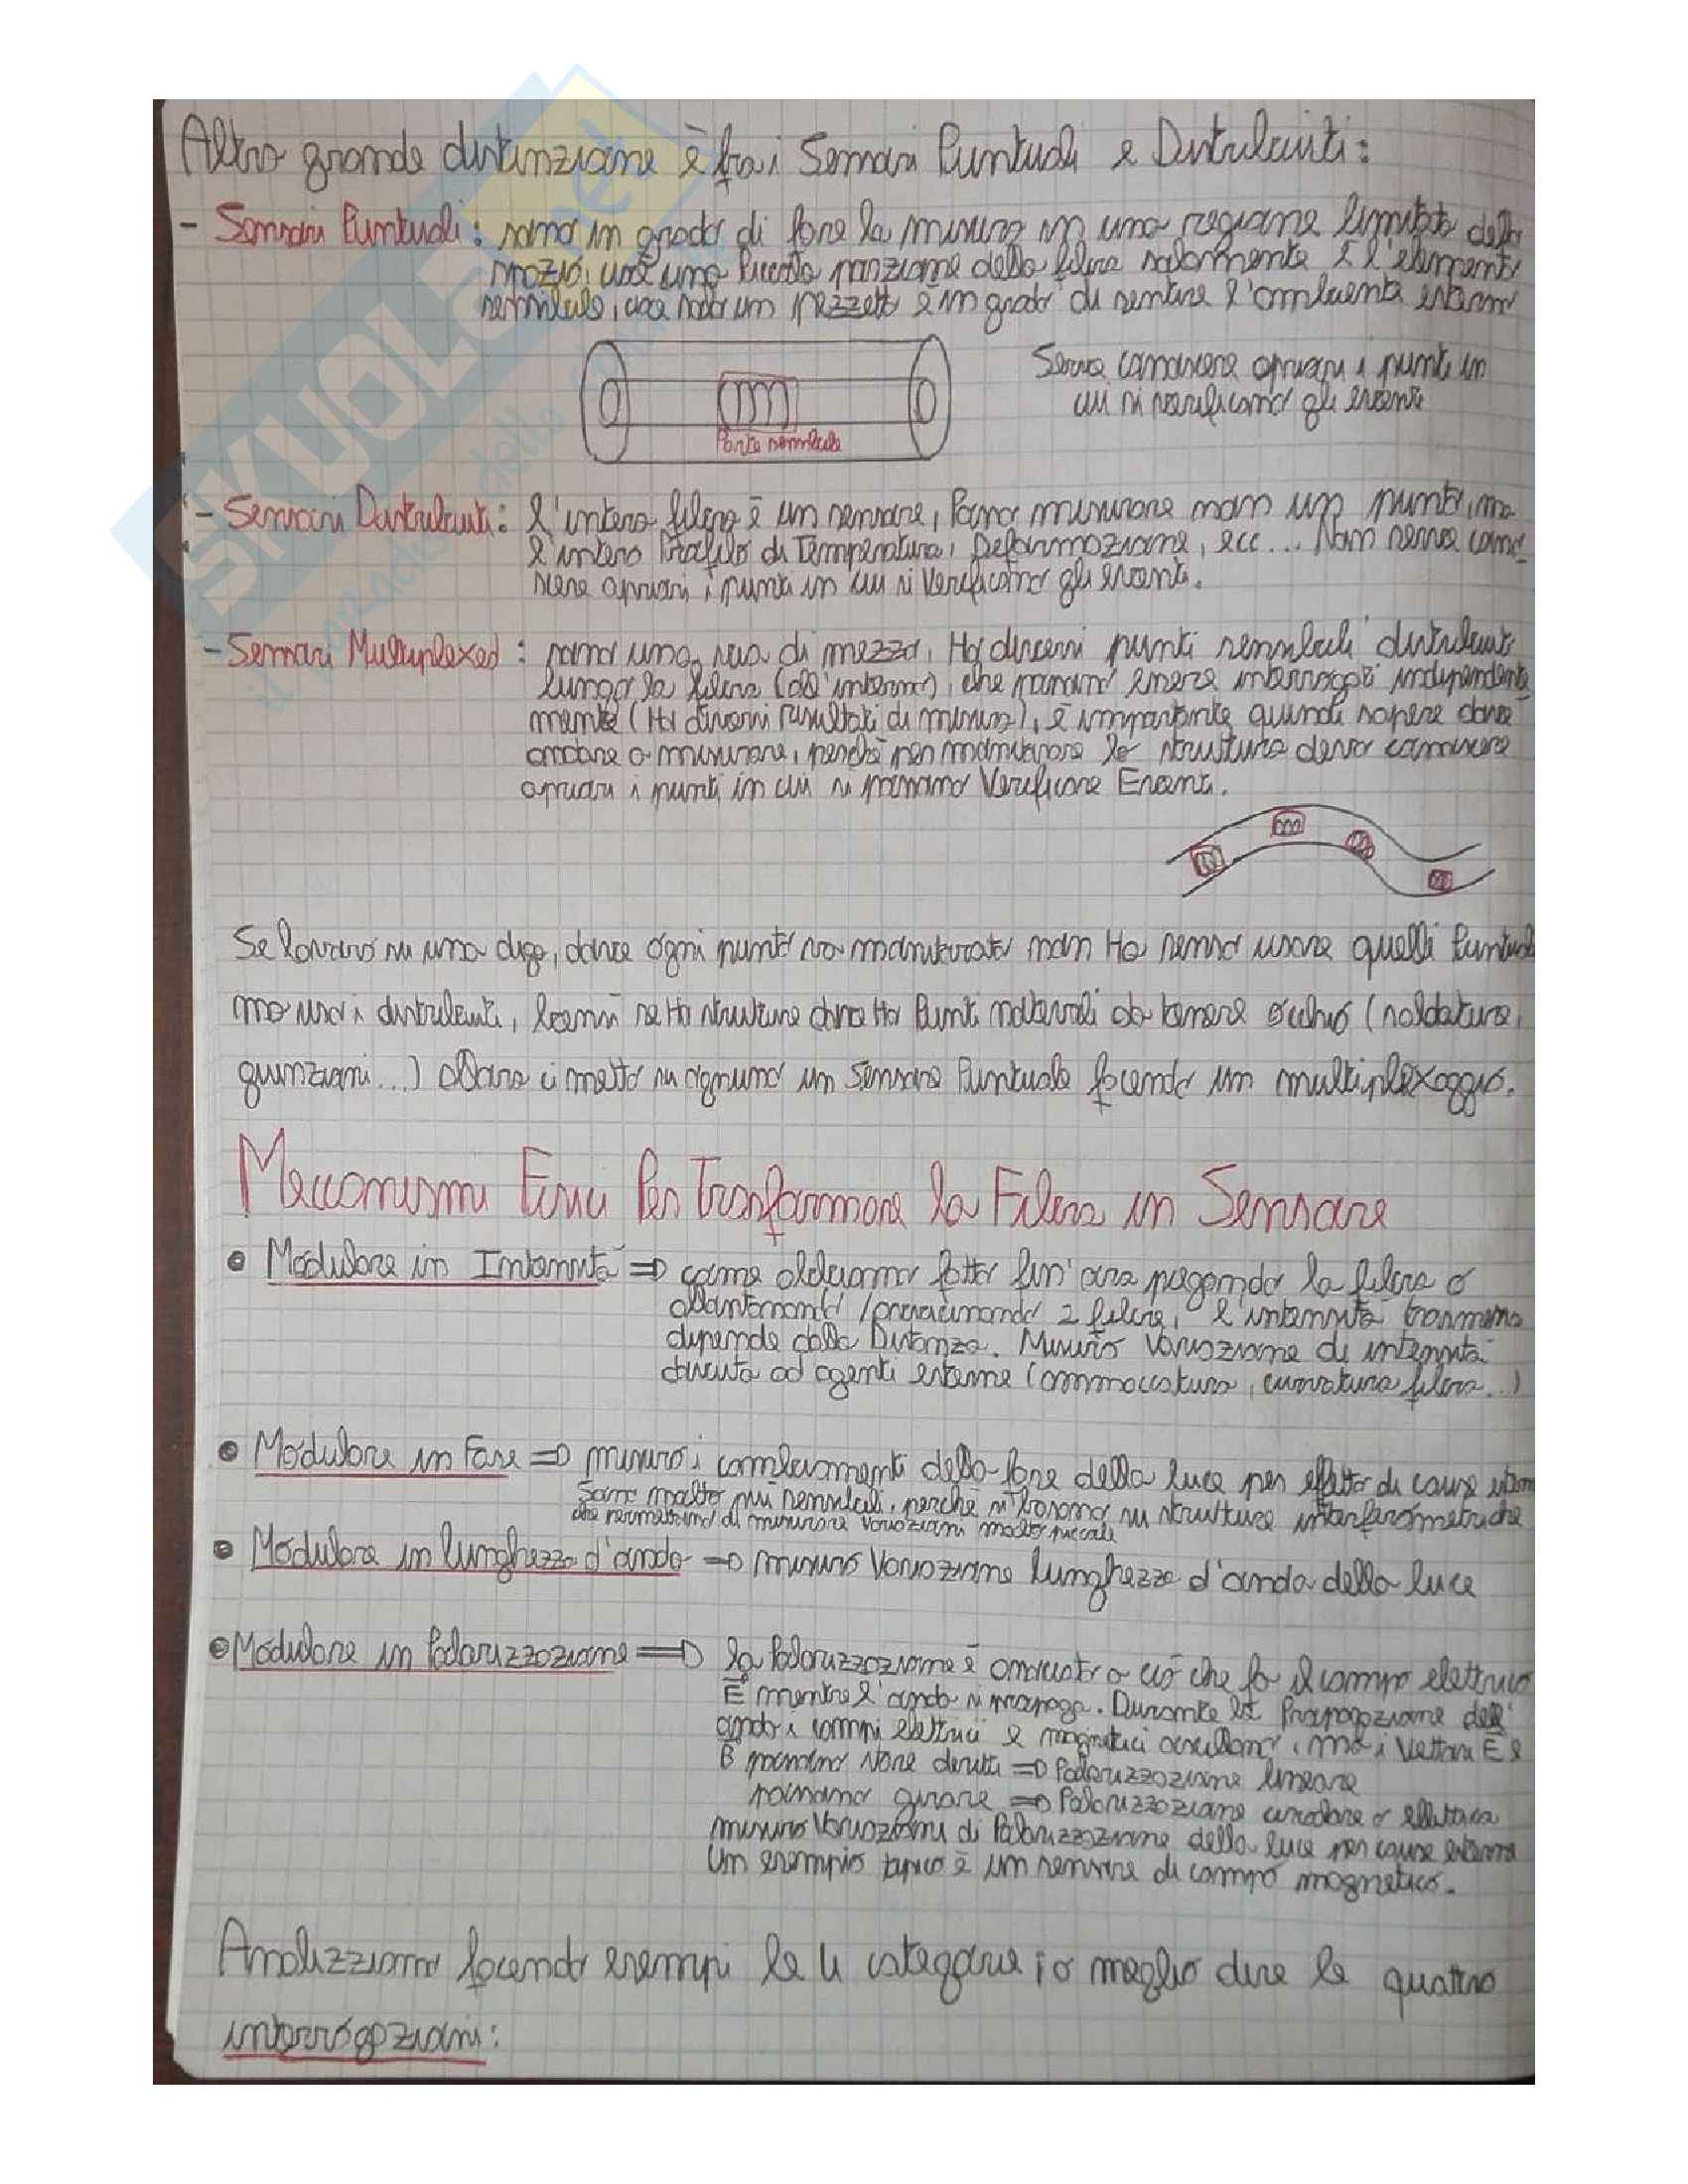 Altra grande distinzione è fra i Sensori Puntuali e Distribuiti:
- Sensori Puntuali: sono in grado di fare la misura in una regione limitata dello
spazio, cioè una piccola porzione della fibra solamente è l'elemento
sensibile, cioè solo un pezzetto è in grado di sentire l'ambiente esterno
Serve conoscere apriori i punti in
cui si verificano gli eventi
Parte sensibile
- Sensori Distribuiti: l'intera fibra è un sensore, Posso misurare non un punto, ma
l'intero Profilo di Temperatura, Deformazione, ecc... Non serve cono-
scere apriori i punti in cui si Verificano gli eventi.
- Sensori Multiplexed: sono una via di mezzo, Ho diversi punti sensibili distribuiti
lungo la fibra (all'interno), che possono essere interrogati indipendente
mente (Ho diversi risultati di misura), è importante quindi sapere dove
andare a misurare, perchè per monitorare la struttura devo conoscere
apriori i punti in cui si possono Verificare Eventi.
Se lavoro su una diga, dove ogni punto va monitorato non Ha senso usare quelli Puntuali
ma uso i distribuiti, bensì se Ho strutture dove Ho Punti notevoli da tenere occhio (saldature,
giunzioni...) allora ci metto su ognuno un Sensore Puntuale facendo un multiplexaggio.
Meccanismi Fisici Per Trasformare la Fibra in Sensore
• Modulare in Intensità ⇒ come abbiamo fatto fin'ora piegando la fibra o
allontanando/avvicinando 2 fibre, l'intensità trasmessa
dipende dalla Distanza. Misuro Variazione di intensità
dovuta ad agenti esterni (ammaccatura, curvatura fibra...)
• Modulare in Fase ⇒ misuro i cambiamenti della fase della luce per effetto di cause esterne
Sono molto più sensibili, perchè si basano su strutture interferometriche
che permettono di misurare variazioni molto piccole
• Modulare in lunghezza d'onda ⇒ misuro Variazione lunghezza d'onda della luce
• Modulare in Polarizzazione ⇒ la Polarizzazione è associata a ciò che fa il campo elettrico
E mentre l'onda si propaga. Durante la Propagazione dell'
onda i campi elettrici e magnetici oscillano, ma i Vettori E e
B possono stare diritti ⇒ Polarizzazione lineare
possono girare ⇒ Polarizzazione circolare o ellittica
misuro Variazioni di Polarizzazione della luce per cause esterne
Un esempio tipico è un sensore di campo magnetico.
Analizziamo facendo esempi le 4 categorie, o meglio dire le quattro
interrogazioni: